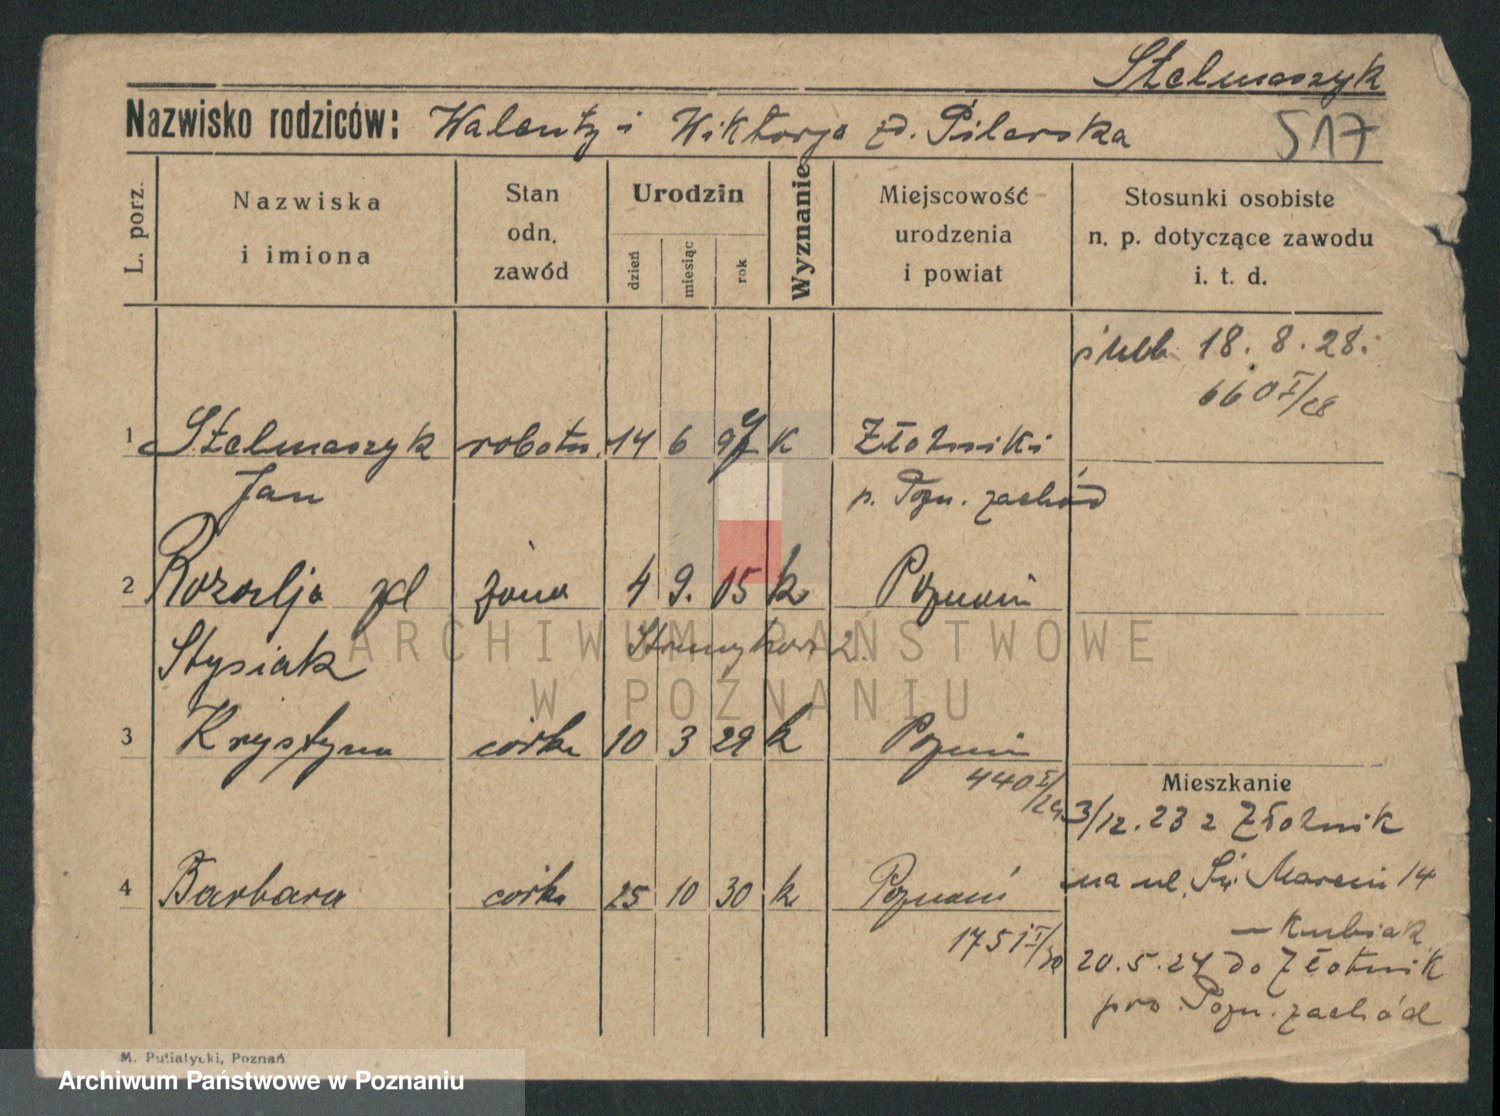 Stelmaszyk
Nazwisko rodziców: Walenty i Wiktorja zd. Pilarska
517
L. porz.
Nazwiska
i imiona
Stan
odn.
zawód
Urodzin
dzień
miesiąc
rok
Wyznanie
Miejscowość
urodzenia
i powiat
Stosunki osobiste
n. p. dotyczące zawodu
i. t. d.
ślub 18. 8. 28.
660 I/28
1 Stelmaszyk robotn. 14 6 97 k Złotniki
Jan p. Pozn. zachód
2 Rozalja zd żona 4 9. 05 k Poznań
Stysiak 2.
3 Krystyna córka 10 3 29 k Poznań
440 I/29
Mieszkanie
3/12. 23 z Złotnik
4 Barbara córka 25 10 30 k Poznań
na ul. Św Marcin 14
1751 I/30
— Kubiak
20. 5. 24 do Złotnik
pow. Pozn. zachód
M. Putiatycki, Poznań
ARCHIWUM PAŃSTWOWE
W POZNANIU
Archiwum Państwowe w Poznaniu